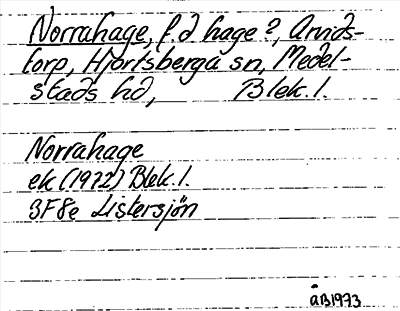 Norrahage, f.d hage?, Arvids-
torp, Hjortsberga sn, Medel-
stads hd, Blek.l.
Norrahage
ek (1972) Blek.l.
3F8e Listersjön
ÅB1973